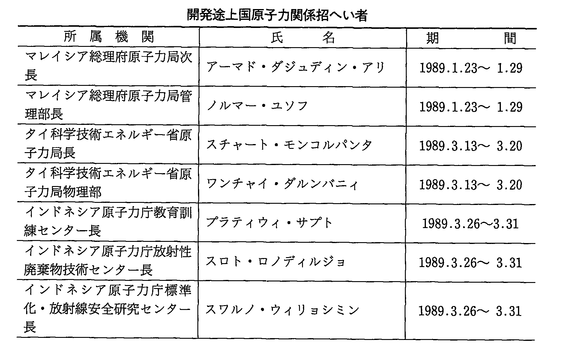 開発途上国原子力関係招へい者
所属機関 氏名 期間
マレイシア総理府原子力局次
長 アーマド・ダジュディン・アリ 1989.1.23〜 1.29
マレイシア総理府原子力局管
理部長 ノルマー・ユソフ 1989.1.23〜 1.29
タイ科学技術エネルギー省原
子力局長 スチャート・モンコルパンタ 1989.3.13〜 3.20
タイ科学技術エネルギー省原
子力局物理部 ワンチャイ・ダルンバニィ 1989.3.13〜 3.20
インドネシア原子力庁教育訓
練センター長 プラティウィ・サプト 1989.3.26〜3.31
インドネシア原子力庁放射性
廃棄物技術センター長 スロト・ロノディルジョ 1989.3.26〜 3.31
インドネシア原子力庁標準
化・放射線安全研究センター
長 スワルノ・ウィリョシミン 1989.3.26〜 3.31